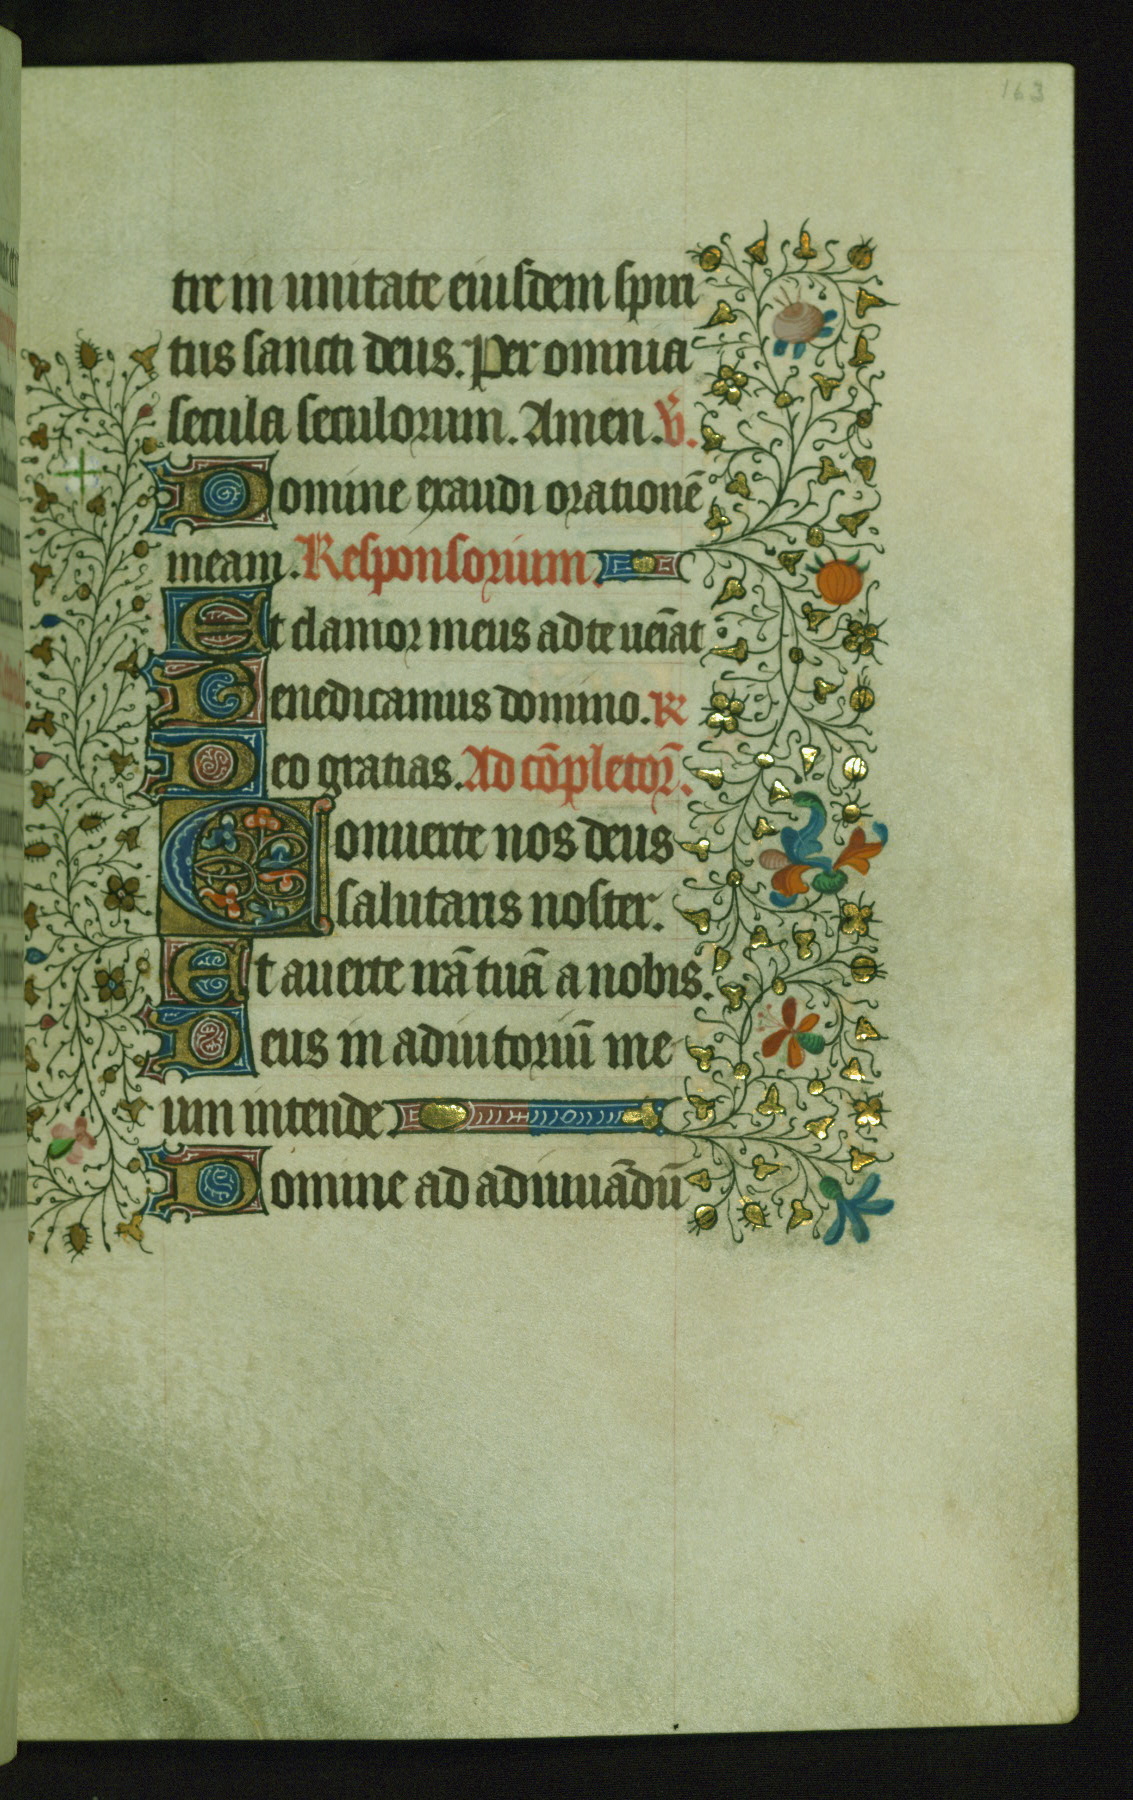 163
tre in unitate eiusdem spiri
tus sancti deus. Per omnia
secula seculorum. Amen. v̄.
Domine exaudi orationē
meam. Responsorium.
Et clamor meus ad te ueīat
Benedicamus domino. R
Deo gratias. Ad cōpletoꝝ̄.
Conuerte nos deus
salutaris noster.
Et auerte irā tuā a nobis.
Deus in adiutoriū me
um intende
Domine ad adiuuādū